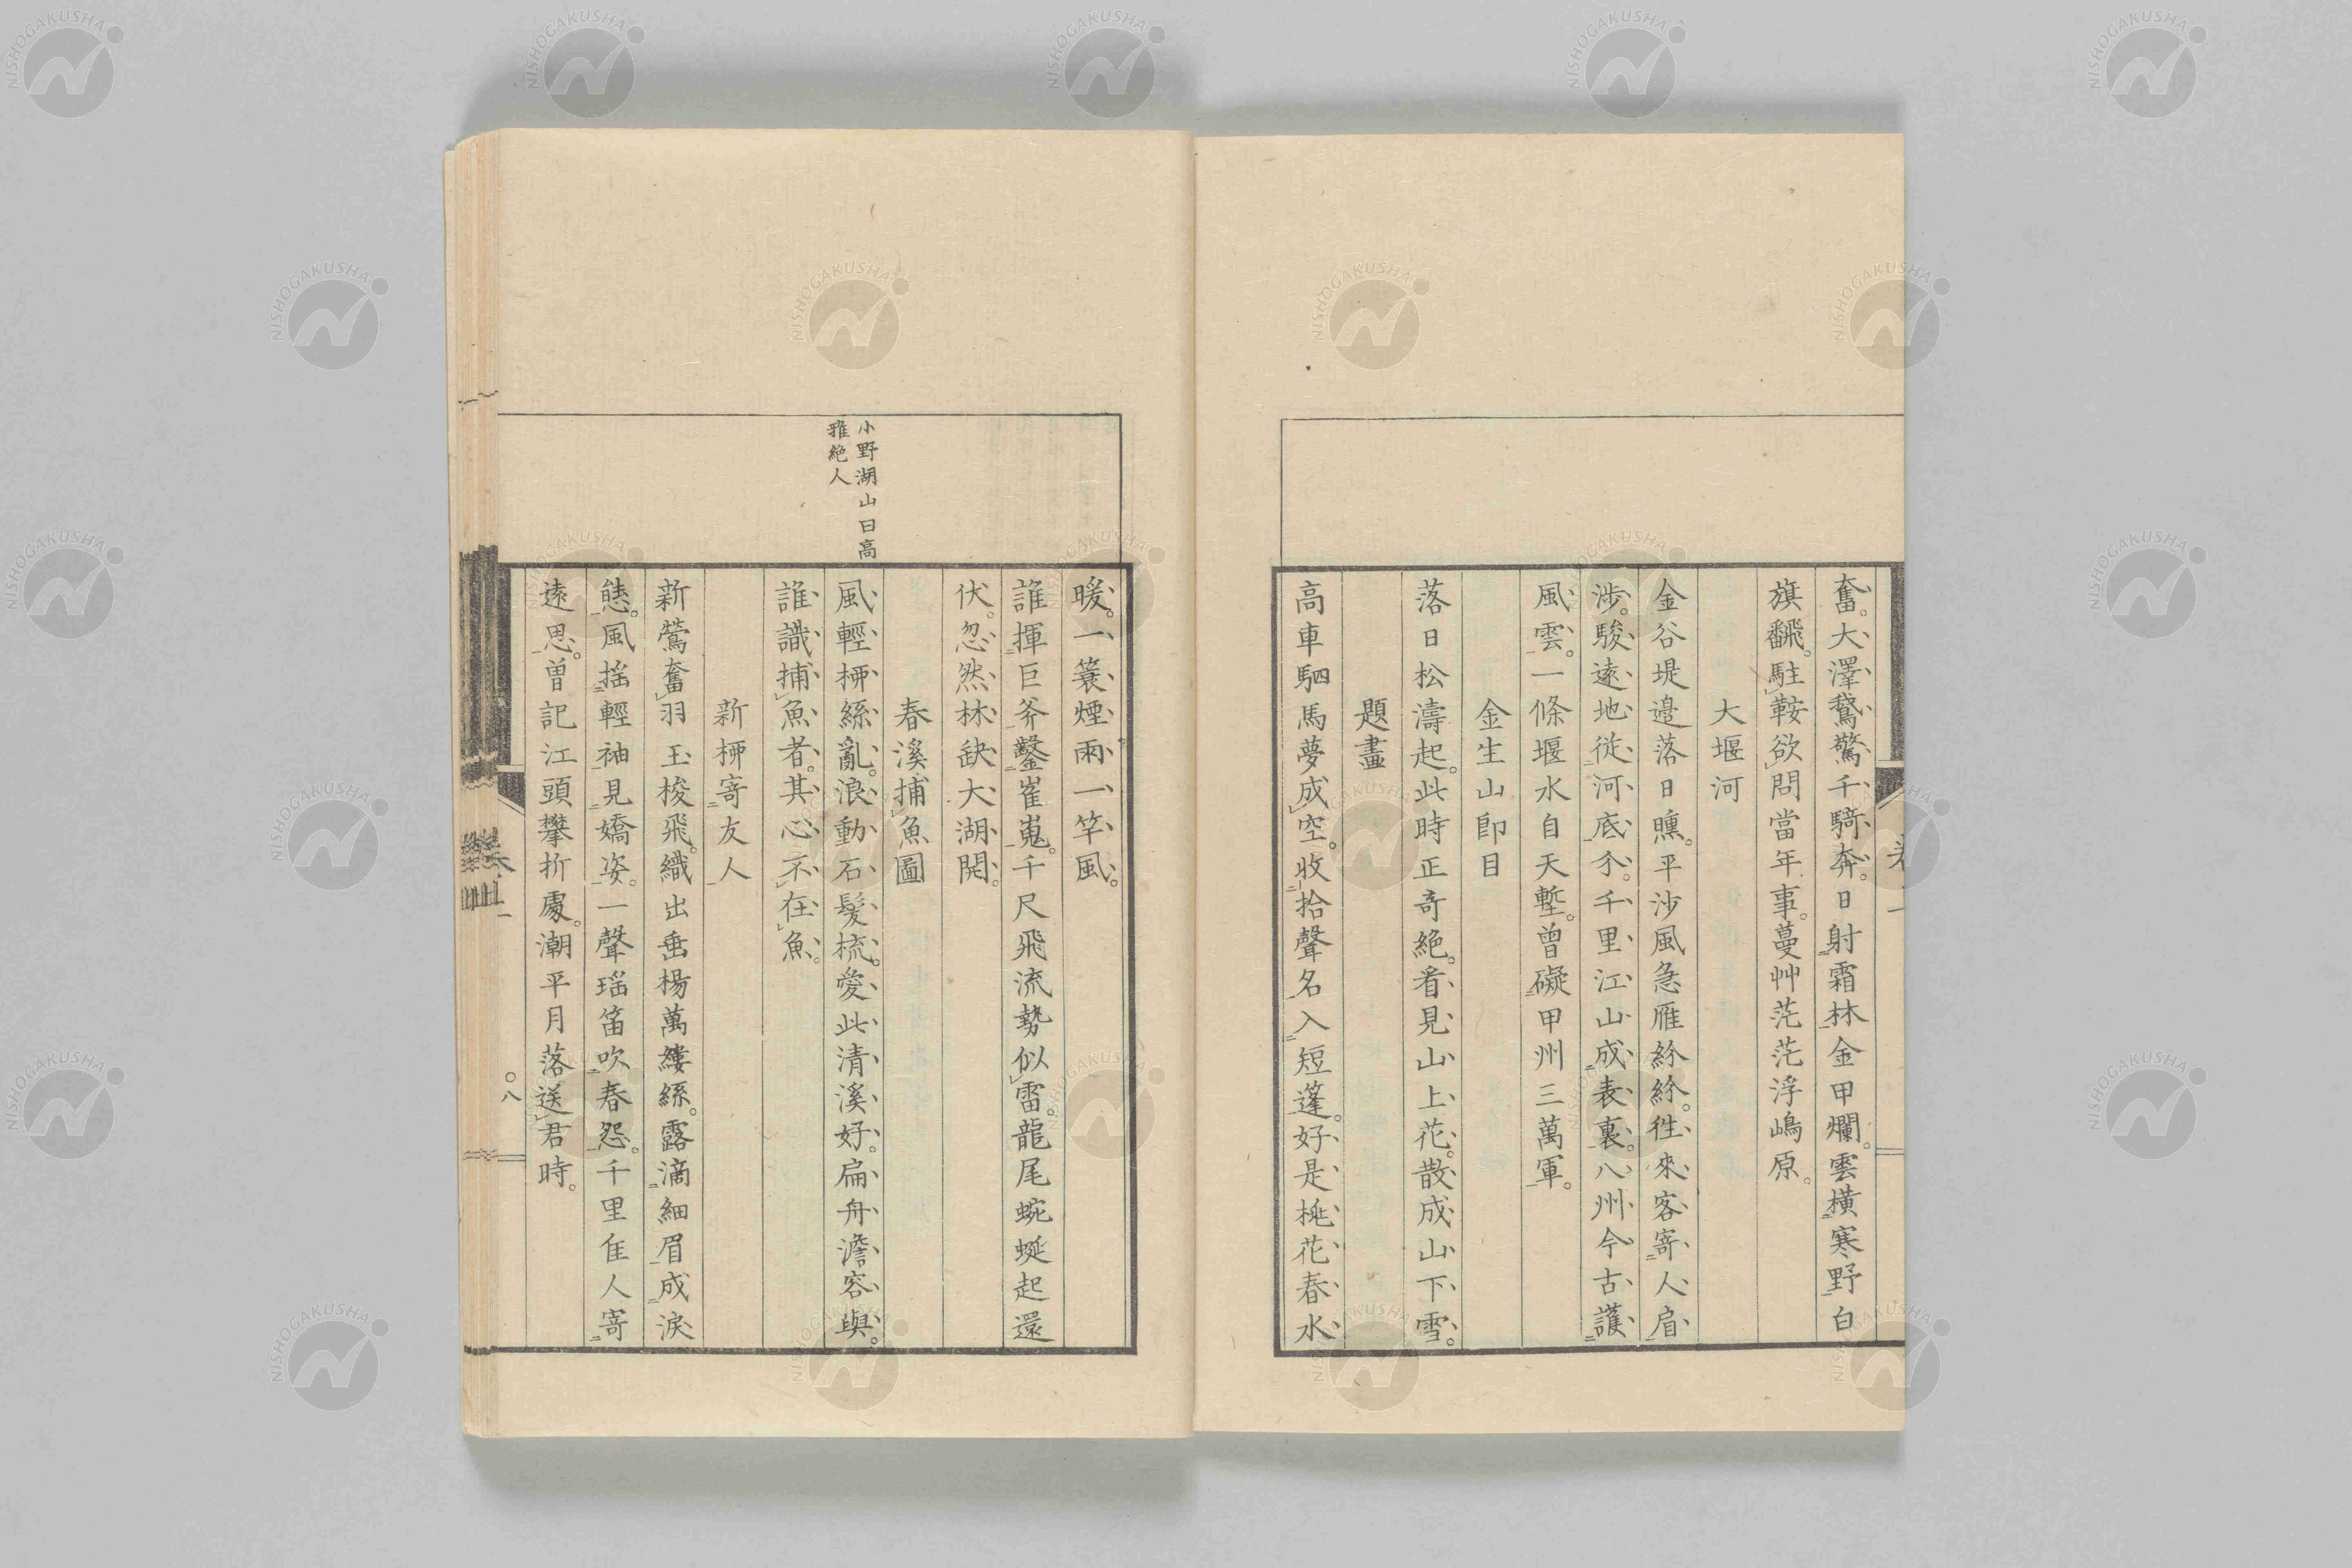 奮。大澤鵞驚千騎奔。日射霜林金甲爛。雲橫寒野白
旗飜。駐鞍欲問當年事。蔓艸茫茫浮嶋原。
大堰河
金谷堤邉落日曛。平沙風急雁紛紛。徃來客寄人肩
渉。駿遠地從河底分。千里江山成表裏。八州今古護
風雲。一條堰水自天塹。曾礙甲州三萬軍。
金生山卽目
落日松濤起。此時正奇絶。看見山上花。散成山下雪。
題畫
高車駟馬夢成空。收拾聲名入短篷。好是桃花春水
小野湖山曰高
雅絶人
暖。一簑煙雨一竿風。
誰揮巨斧鑿崔嵬。千尺飛流勢似雷。龍尾蜿蜒起還
伏。忽然林缺大湖開。
春溪捕魚圖
風輕柳絲亂。浪動石髮梳。愛此清溪好。扁舟澹容與。
誰識捕魚者。其心不在魚。
新柳寄友人
新鶯奮羽玉梭飛。織出垂楊萬縷絲。露滴細眉成淚
態。風搖輕袖見嬌姿。一聲瑶笛吹春怨。千里佳人寄
遠思。曽記江頭攀折處。潮平月落送君時。
〇八
NISHOGAKUSHA